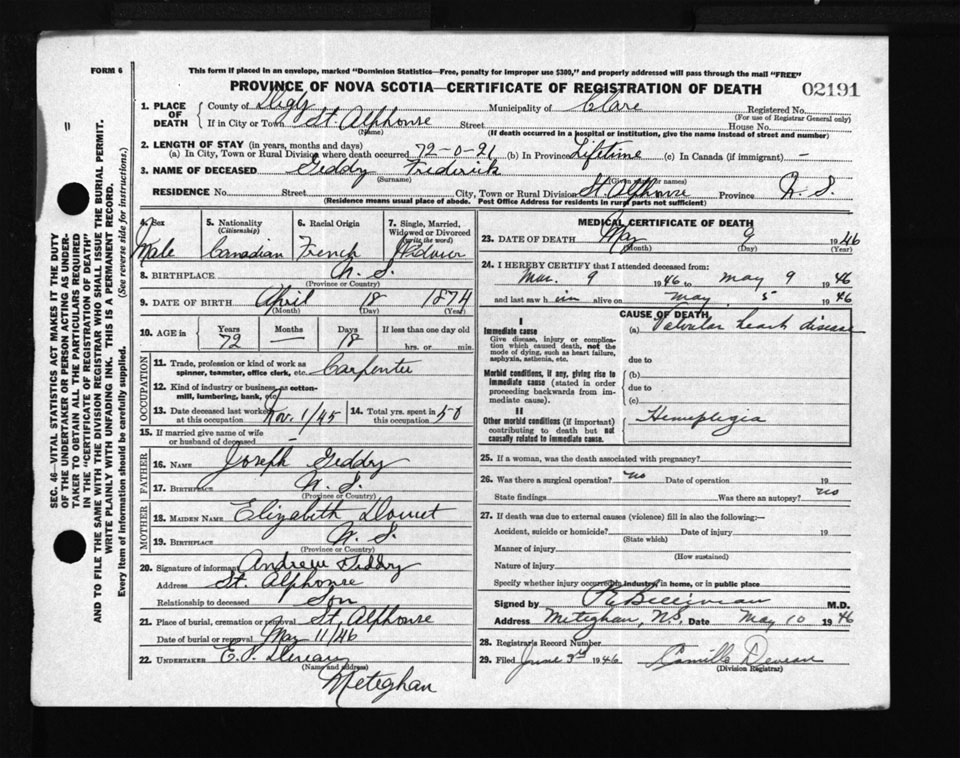 FORM 6
This form if placed in an envelope, marked "Dominion Statistics—Free, penalty for improper use $300," and properly addressed will pass through the mail "FREE"
PROVINCE OF NOVA SCOTIA—CERTIFICATE OF REGISTRATION OF DEATH
02191
1. PLACE OF DEATH County of Digby Municipality of Clare Registered No.
(For use of Registrar General only)
If in City or Town St. Alphonse Street House No.
(Name) (If death occurred in a hospital or institution, give the name instead of street and number)
2. LENGTH OF STAY (in years, months and days)
(a) In City, Town or Rural Division where death occurred 72-0-21 (b) In Province Lifetime (c) In Canada (if immigrant) —
3. NAME OF DECEASED Geddry Frederick
(Surname) (Given or other names)
RESIDENCE No. Street City, Town or Rural Division St. Alphonse Province N. S.
(Residence means usual place of abode. Post Office Address for residents in rural parts not sufficient)
4. Sex Male
5. Nationality (Citizenship) Canadian
6. Racial Origin French
7. Single, Married, Widowed or Divorced (write the word) Widower
8. BIRTHPLACE N. S.
(Province or Country)
9. DATE OF BIRTH April 18 1874
(Month) (Day) (Year)
10. AGE in Years 72 Months — Days 18 If less than one day old hrs. or min.
OCCUPATION
11. Trade, profession or kind of work as spinner, teamster, office clerk, etc. Carpenter
12. Kind of industry or business, as cotton-mill, lumbering, bank, etc.
13. Date deceased last worked at this occupation Nov. 1/45 14. Total yrs. spent in this occupation 50
15. If married give name of wife or husband of deceased —
FATHER
16. NAME Joseph Geddry
17. BIRTHPLACE N. S.
(Province or Country)
MOTHER
18. MAIDEN NAME Elizabeth Doucet
19. BIRTHPLACE N. S.
(Province or Country)
20. Signature of informant Andrew Geddry
Address St. Alphonse
Relationship to deceased Son
21. Place of burial, cremation or removal St. Alphonse
Date of burial or removal May 11/46
22. UNDERTAKER E.
(Name and address)
Meteghan
MEDICAL CERTIFICATE OF DEATH
23. DATE OF DEATH May 9 1946
(Month) (Day) (Year)
24. I HEREBY CERTIFY that I attended deceased from:
Mar. 9 1946 to May 9 1946
and last saw h im alive on May 5 1946
CAUSE OF DEATH
I
Immediate cause (a) Valvular heart disease
Give disease, injury or complication which caused death, not the mode of dying, such as heart failure, asphyxia, asthenia, etc.
due to
Morbid conditions, if any, giving rise to immediate cause (stated in order proceeding backwards from immediate cause).
(b)
due to
(c)
II
Other morbid conditions (if important) contributing to death but not causally related to immediate cause.
Hemiplegia
25. If a woman, was the death associated with pregnancy?
26. Was there a surgical operation? no Date of operation 19
State findings Was there an autopsy? no
27. If death was due to external causes (violence) fill in also the following:—
Accident, suicide or homicide? Date of injury 19
(State which)
Manner of injury
(How sustained)
Nature of injury
Specify whether injury occurred in industry, in home, or in public place
Signed by Belliveau M.D.
Address Meteghan, N.S. Date May 10 1946
28. Registrar's Record Number
29. Filed June 3rd 1946 Camille Deveau
(Division Registrar)
SEC. 46—VITAL STATISTICS ACT MAKES IT THE DUTY
OF THE UNDERTAKER OR PERSON ACTING AS UNDER-
TAKER TO OBTAIN ALL THE PARTICULARS REQUIRED
IN THE "CERTIFICATE OF REGISTRATION OF DEATH"
AND TO FILE THE SAME WITH THE DIVISION REGISTRAR WHO SHALL ISSUE THE BURIAL PERMIT.
WRITE PLAINLY WITH UNFADING INK. THIS IS A PERMANENT RECORD.
Every item of information should be carefully supplied. (See reverse side for instructions.)